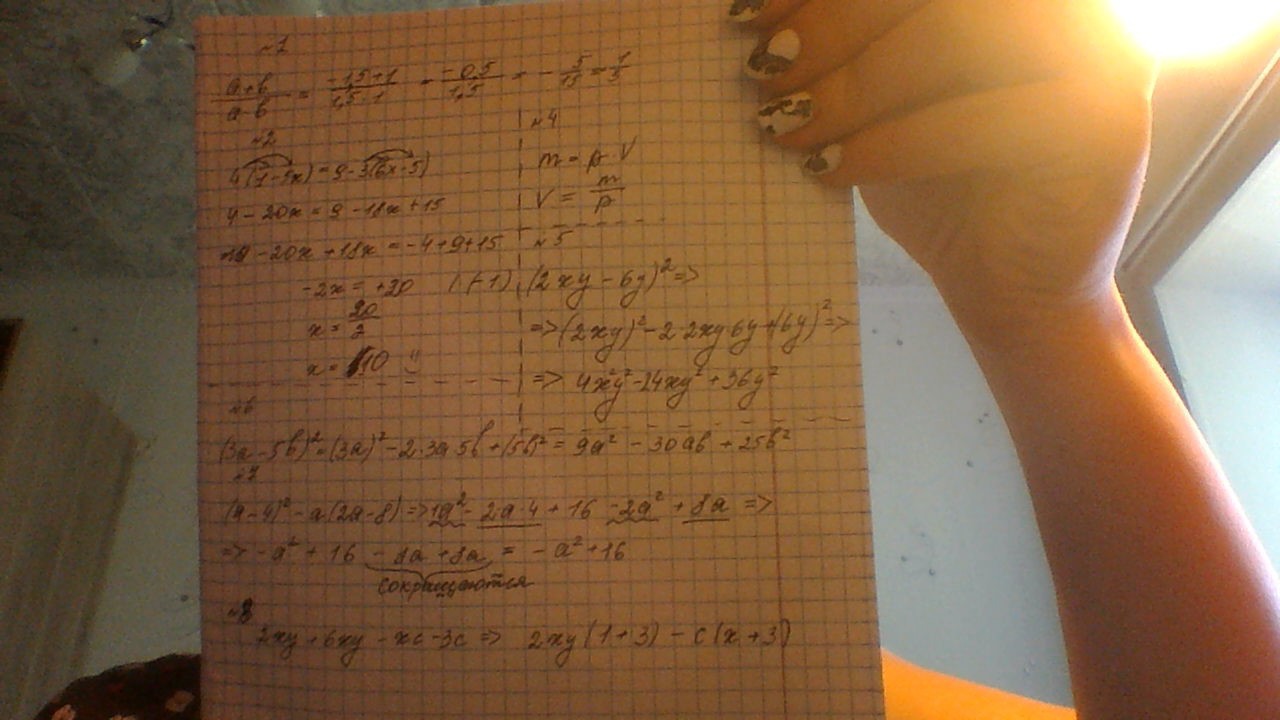 №1
(a+b)/(a-b) = (-1,5+1)/(1,5-1) = (-0,5)/(1,5) = -5/15 = 1/3
№2
4(1-5x)=9-3(6x-5)
4-20x=9-18x+15
-20x+18x=-4+9+15
-2x=+20 (-1)
x=20/2
x=10
№4
m=p·V
V=m/p
№5
(2xy-6y)²=>
=>(2xy)²-2·2xy·6y+(6y)²=>
=>4x²y²-24xy²+36y²
№6
(3a-5b)²=(3a)²-2·3a·5b+(5b)²=9a²-30ab+25b²
№7
(a-4)²-a(2a-8)=>1a²-2a·4+16-2a²+8a=>
=>-a²+16-8a+8a=-a²+16
сокращаются
№8
2xy+6xy-xc-3c=> 2xy(1+3)-c(x+3)